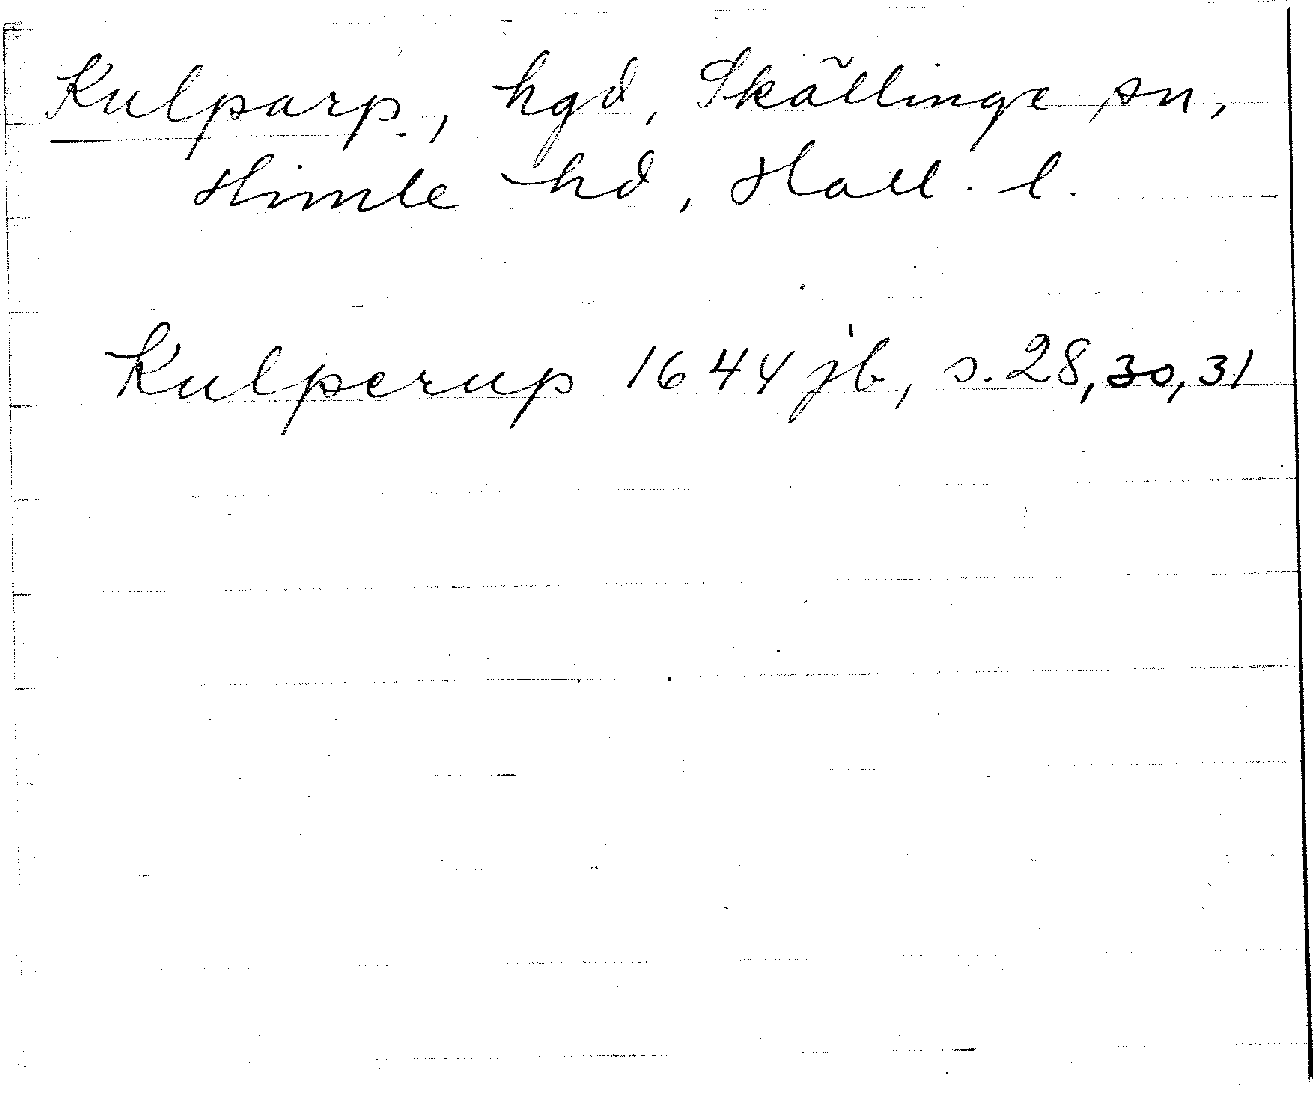 Kulparp, hgd, Skällinge sn,
Himle hd, Hall. l.
Kulperup 1644 jb, s. 28, 30, 31